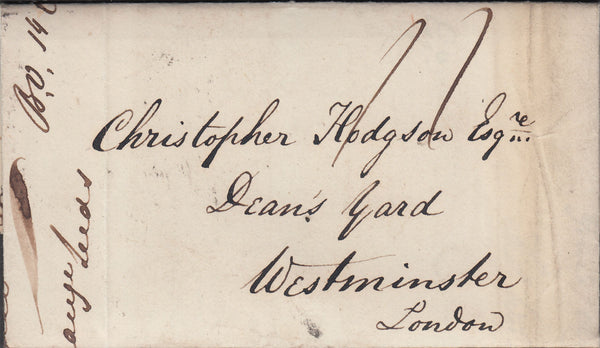 Christopher Hodgson Esqre
Dean's Yard
Westminster
London
11
B.V. 14
ange
Leeds